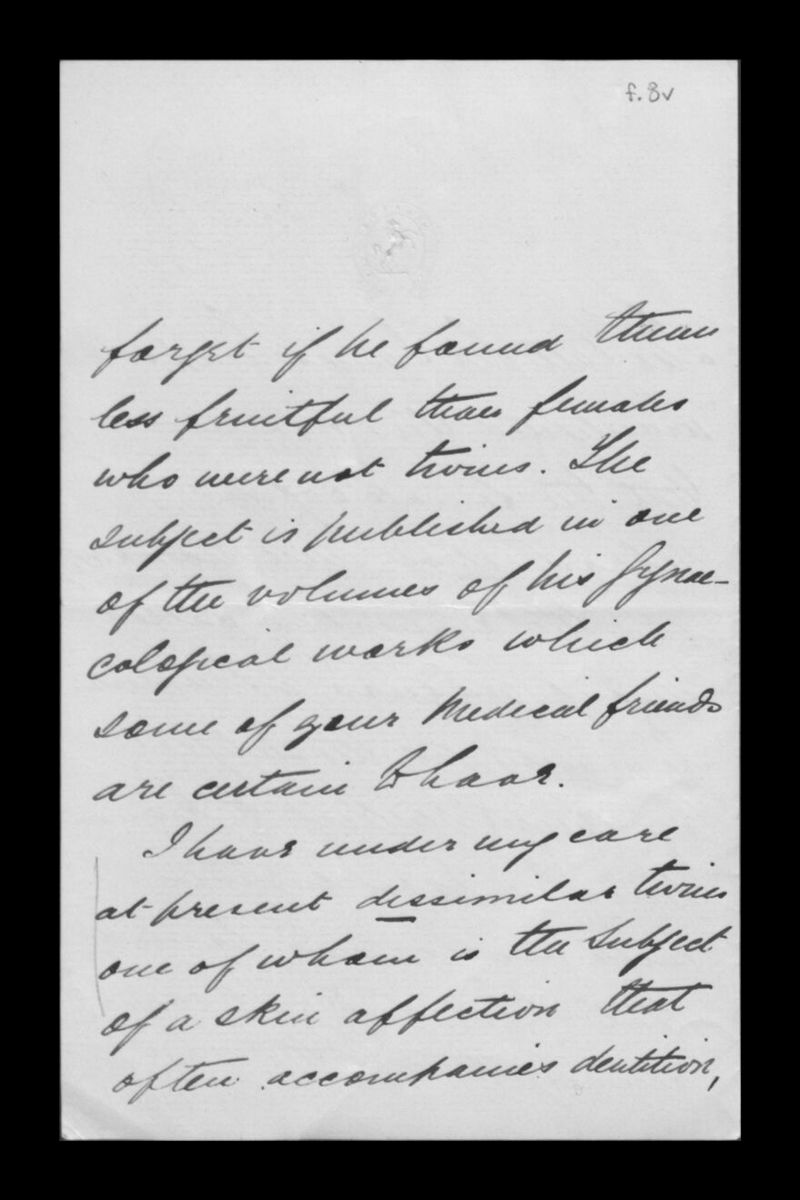 f. 8v
forget if he found them
less fruitful than females
who were not twins. The
subject is published in one
of the volumes of his Gynae-
cological works which
some of your Medical friends
are certain to have.
I have under my care
at present dissimilar twins
one of whom is the subject
of a skin affection that
often accompanies dentition,